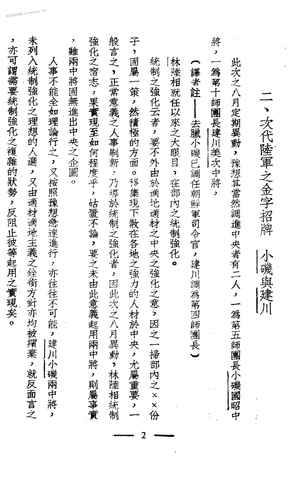 二、次代陸軍之金字招牌　小磯與建川
此次之八月定期異動，豫想其當然調進中央者有二人，一為第五師團長小磯國昭中
將，一為第十師團長建川美次中將，
（譯者註——去臘小磯已調任朝鮮軍司令官，建川調為第四師團長）
林陸相就任以來之大眼目，在部內之統制強化。
統制之強化云者，要不外由於適地適材之中央之強化之意，因之一掃部內之××份
子，固屬一策，然積極的方面，
般言之，正常意義之人事刷新，乃得於統制之強化者，因此次之八月異動，林陸相統制
強化之宿志，果實現至如何程度乎，姑置不論，要之未由此意義起用兩中將，則屬事實
，雖兩中將固無進出中央之企圖。
人事不能全如理論行之，又按照豫想急速進行，亦往往不可能，建川小磯兩中將，
未列入統制強化之理想的人選，又由適材適地主義之銓衡方針亦均被擯棄，就反面言之
，亦可謂需要統制強化之複雜的狀勢，反阻止彼等起用之實現矣。
— 2 —